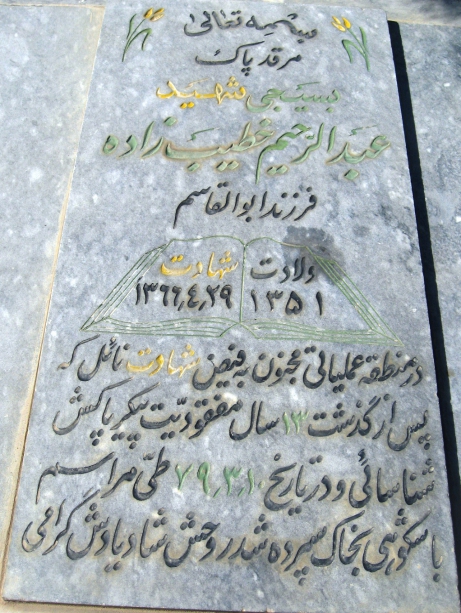 بسمه تعالی
مرقد پاک
بسیجی شهید
عبدالرحیم خطیب زاده
فرزند ابوالقاسم
ولادت شهادت
۱۳۵۱ ۱۳۶۶٫۴٫۲۹
در منطقه عملیاتی مجنون به فیض شهادت نائل که
پس از گذشت ۱۳ سال مفقودیّت پیکر پاکش
شناسائی و در تاریخ ۷۹٫۳٫۱۰ طیّ مراسم
باشکوهی بخاک سپرده شد روحش شاد یادش گرامی